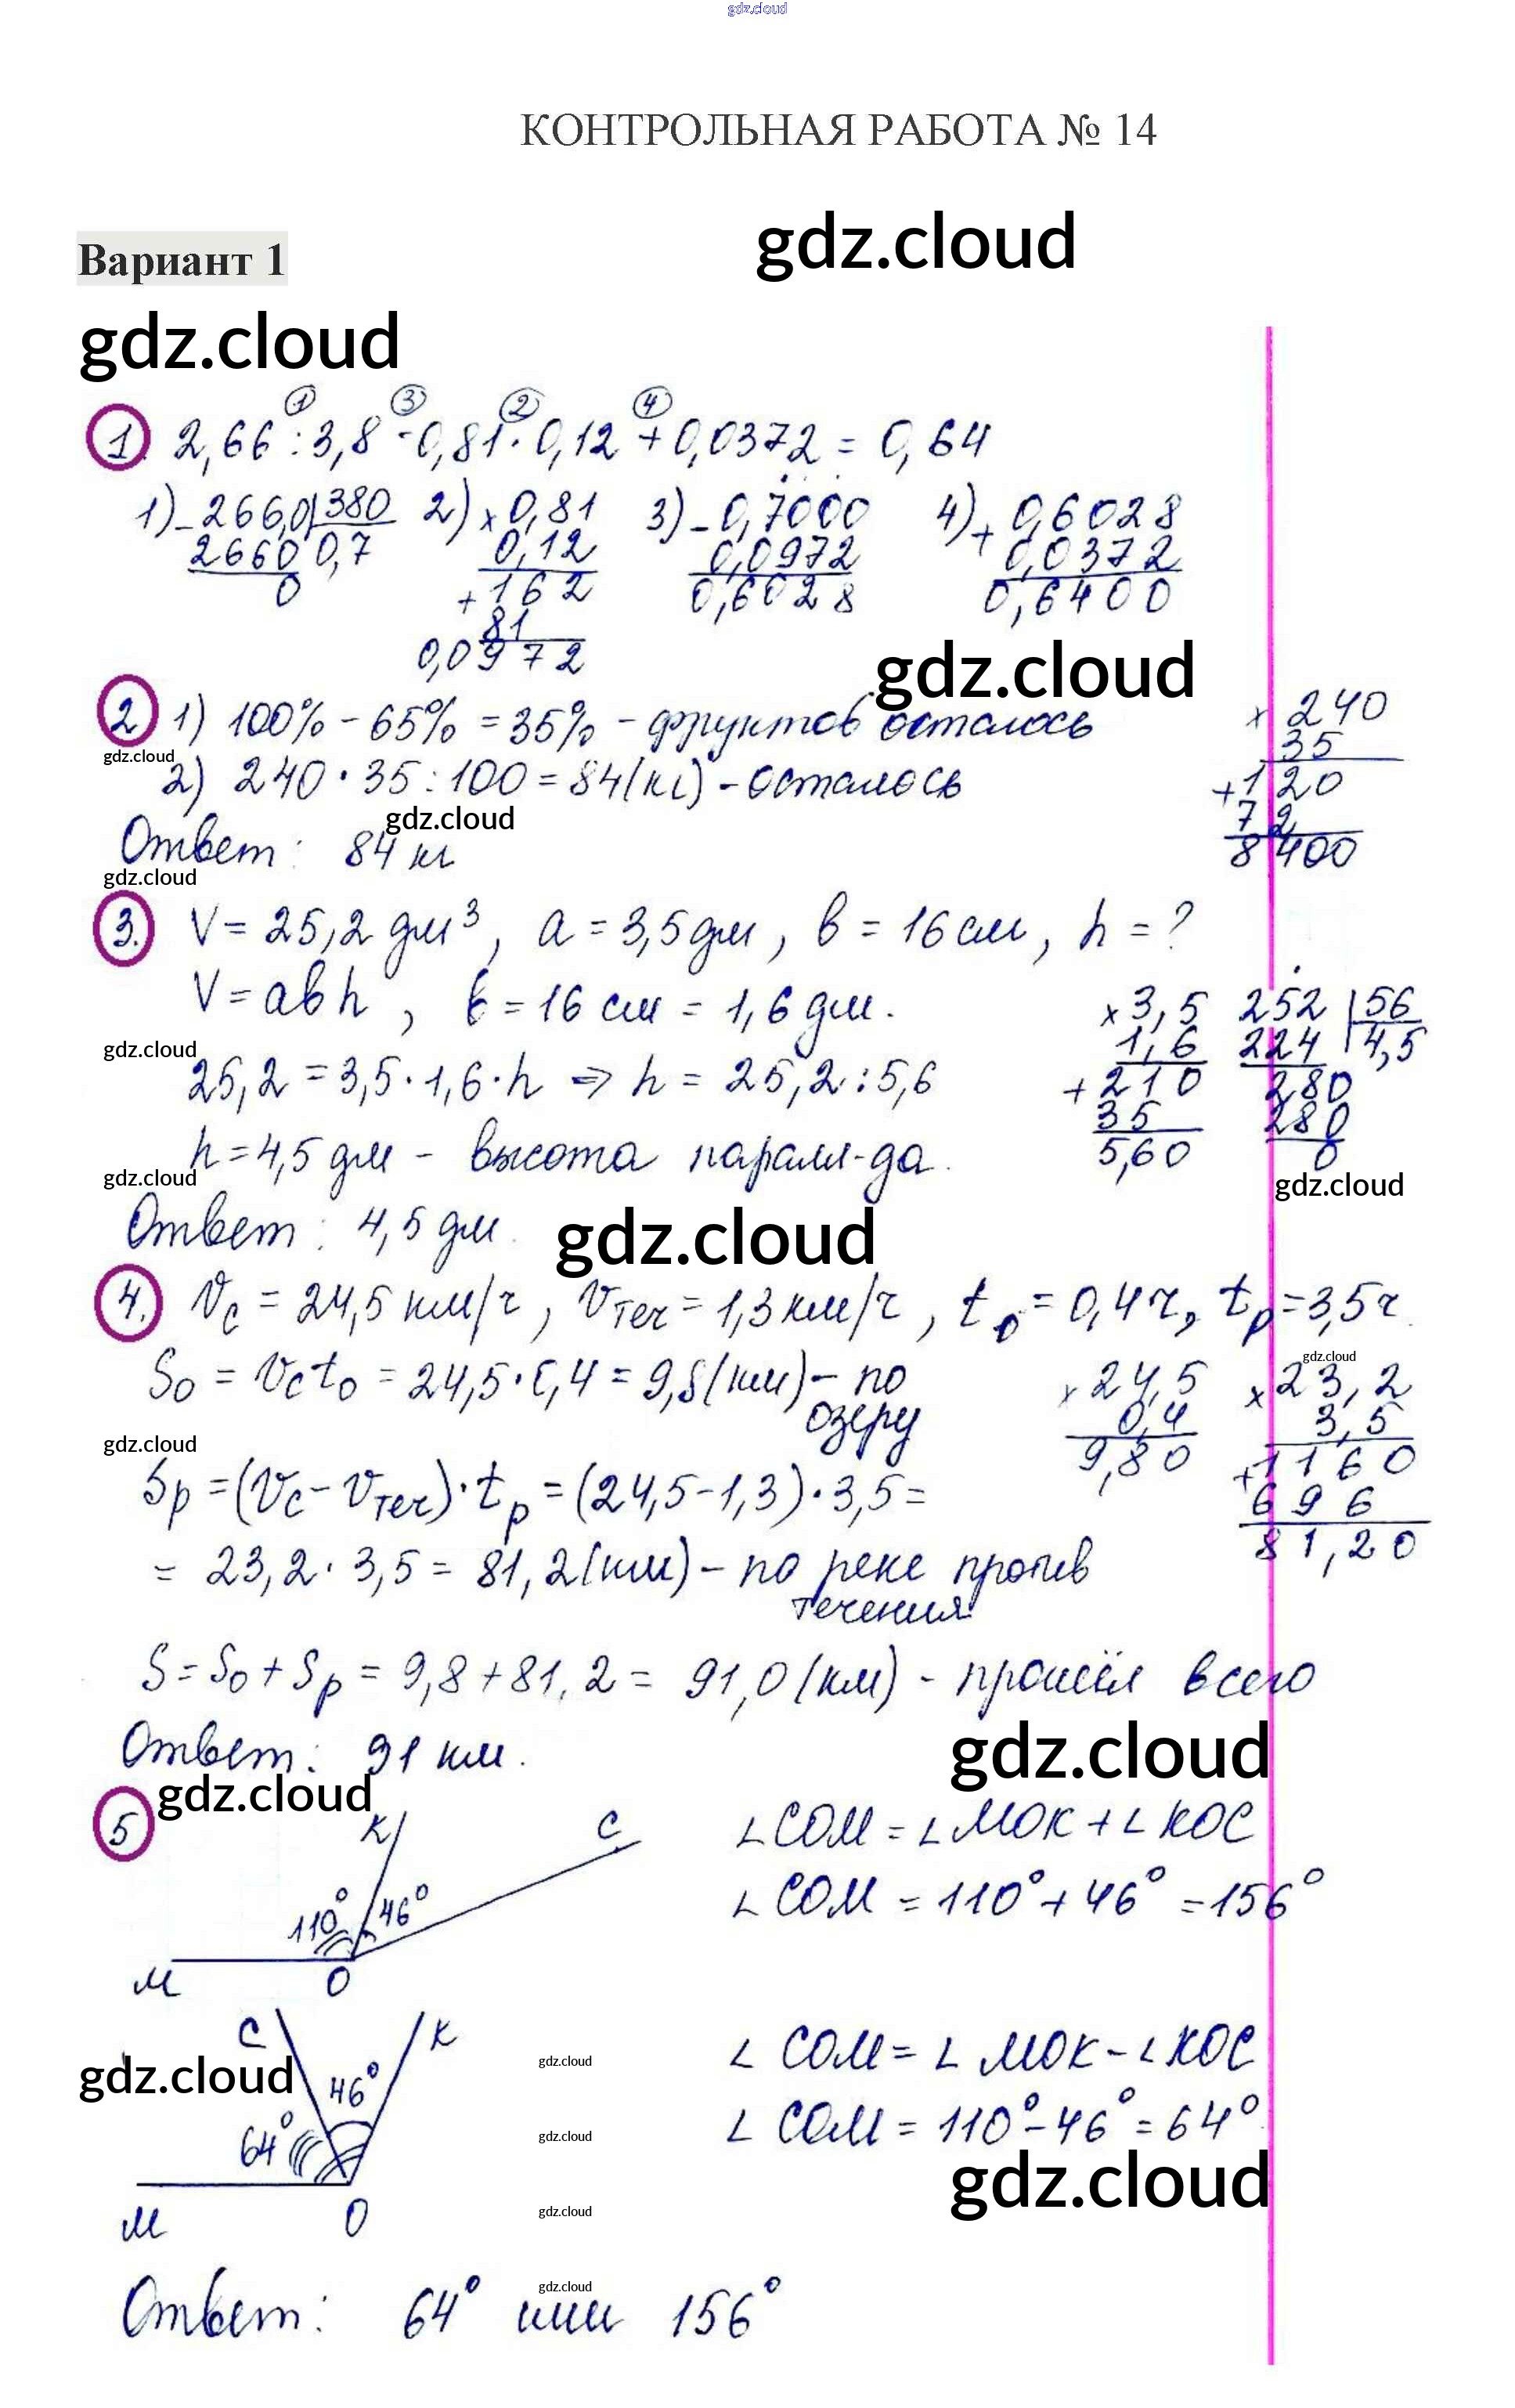 gdz.cloud
КОНТРОЛЬНАЯ РАБОТА № 14
gdz.cloud
Вариант 1
gdz.cloud
① ③ ② ④
1. 2,66 : 3,8 - 0,81 · 0,12 + 0,0372 = 0,64
1) - 266,0 | 380 2) × 0,81 3) - 0,7000 4) + 0,6028
2660 0,7 0,12 0,0972 0,0372
0 + 162 0,6028 0,6400
81
0,0972
gdz.cloud
2 1) 100% - 65% = 35% - фруктов осталось × 240
gdz.cloud 35
2) 240 · 35 : 100 = 84 (кг) - осталось + 120
gdz.cloud 72
Ответ: 84 кг 8400
gdz.cloud
3. V = 25,2 дм³, a = 3,5 дм, b = 16 см, h = ?
V = abh, b = 16 см = 1,6 дм. × 3,5 252 | 56
gdz.cloud 1,6 224 4,5
25,2 = 3,5 · 1,6 · h ⇒ h = 25,2 : 5,6 + 210 280
35 280
h = 4,5 дм - высота паралл-да. 5,60 0
gdz.cloud gdz.cloud
Ответ: 4,5 дм. gdz.cloud
4. Vc = 24,5 км/ч, Vтеч = 1,3 км/ч, t₀ = 0,4 ч, tp = 3,5 ч.
gdz.cloud
S₀ = Vc t₀ = 24,5 · 0,4 = 9,8 (км) - по × 24,5 × 23,2
озеру 0,4 3,5
gdz.cloud 9,80 + 1160
Sp = (Vc - Vтеч) · tp = (24,5 - 1,3) · 3,5 = 696
= 23,2 · 3,5 = 81,2 (км) - по реке против 81,20
течения
S = S₀ + Sp = 9,8 + 81,2 = 91,0 (км) - прошёл всего
Ответ: 91 км. gdz.cloud
gdz.cloud
5 K C ∠COM = ∠MOK + ∠KOC
110° 46° ∠COM = 110° + 46° = 156°
M O
C K ∠COM = ∠MOK - ∠KOC
gdz.cloud 46° gdz.cloud
64° ∠COM = 110° - 46° = 64°
gdz.cloud
gdz.cloud
M O gdz.cloud
gdz.cloud
Ответ: 64° или 156°